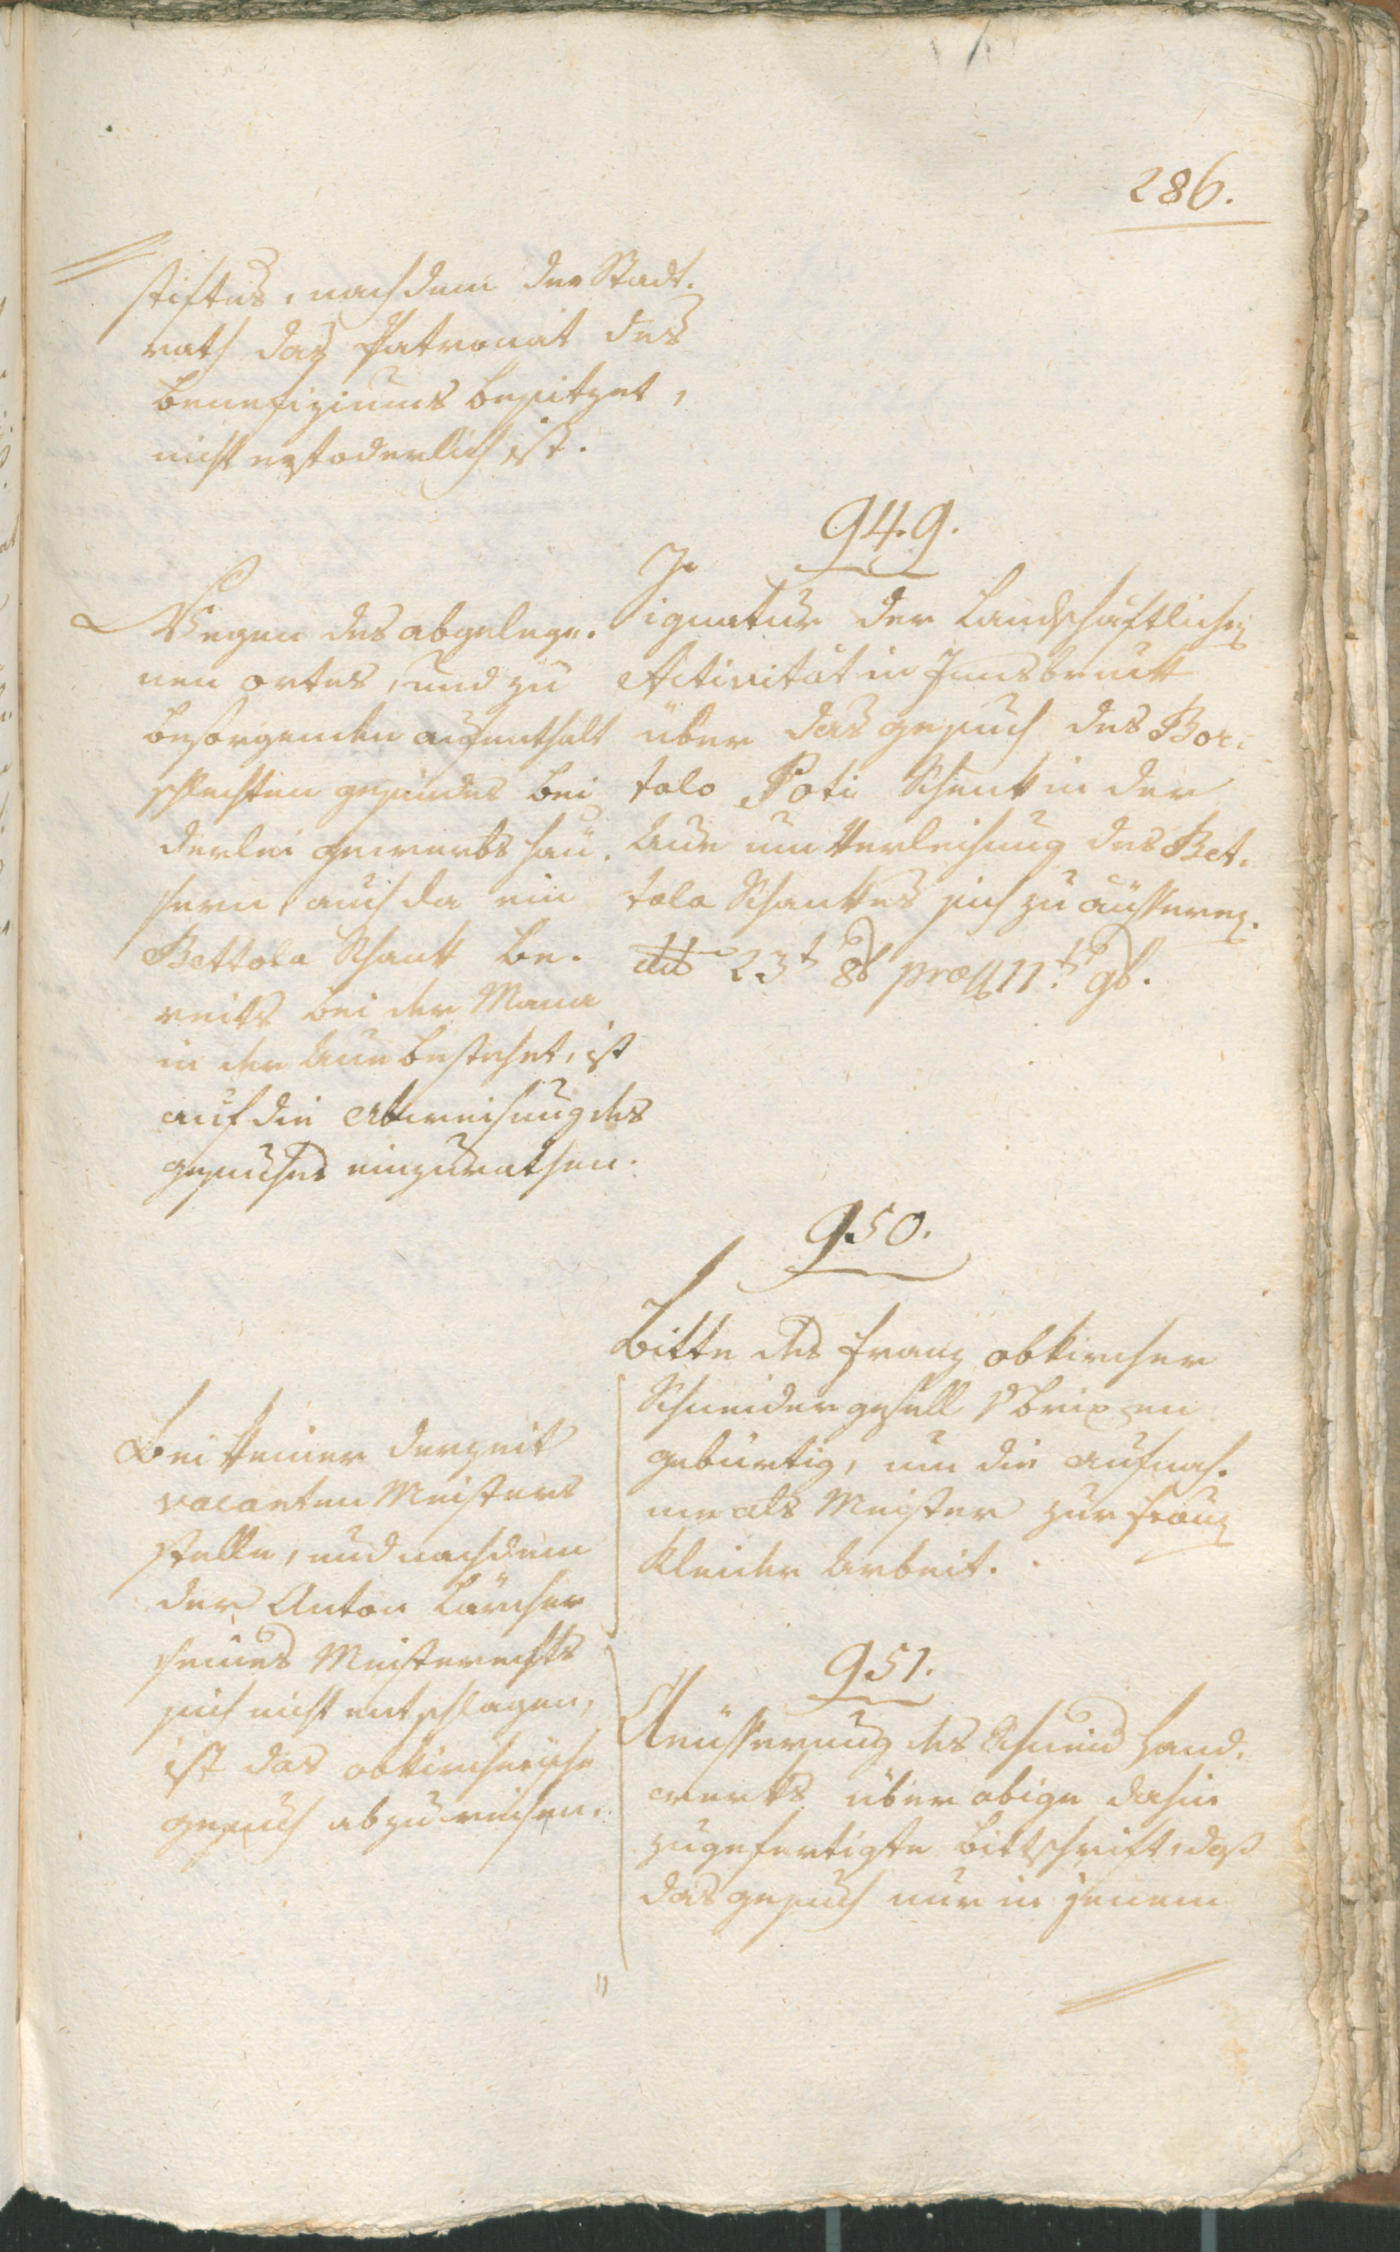 286.
stiftes, nachdem der Stadt.
rath das Patronat des
Benefiziums besitzet,
nicht erfoderlich ist.
949.
Wegen des abgelege.
nen ortes, und zu
besorgenden aufenthalt
schlechten gesindes bei
derlei gewerbs häu.
sern, auch da ein
Bettola Schank be.
reits bei der Maua
in der Aue bestehet, ist
auf die Abweisung des
gesuches einzurathen.
Signatur der Landschaftlichen
Activität in Innsbruck
über das gesuch des Bor.
tolo Poti Schenk in der
Aue um Verleihung des Bet.
tola Schankes sich zu äusseren.
dto 23t 8b praes 11t 9b.
950.
Bitte des Franz obkircher
Schneider gesell v Brixen
gebürtig, um die Aufnah.
me als Meister zur frauen
Kleider Arbeit.
Bei keiner derzeit
vacanten Meisters
stelle, und nachdem
der Anton Lärcher
seines Meisterrechts
sich nicht entschlagen,
ist das obkircherische
gesuch abzuweisen.
951.
Aeusserung des Schneid Hand.
werks über obige dahin
zugefertigte Bittschrift, daß
das gesuch nur in jenem